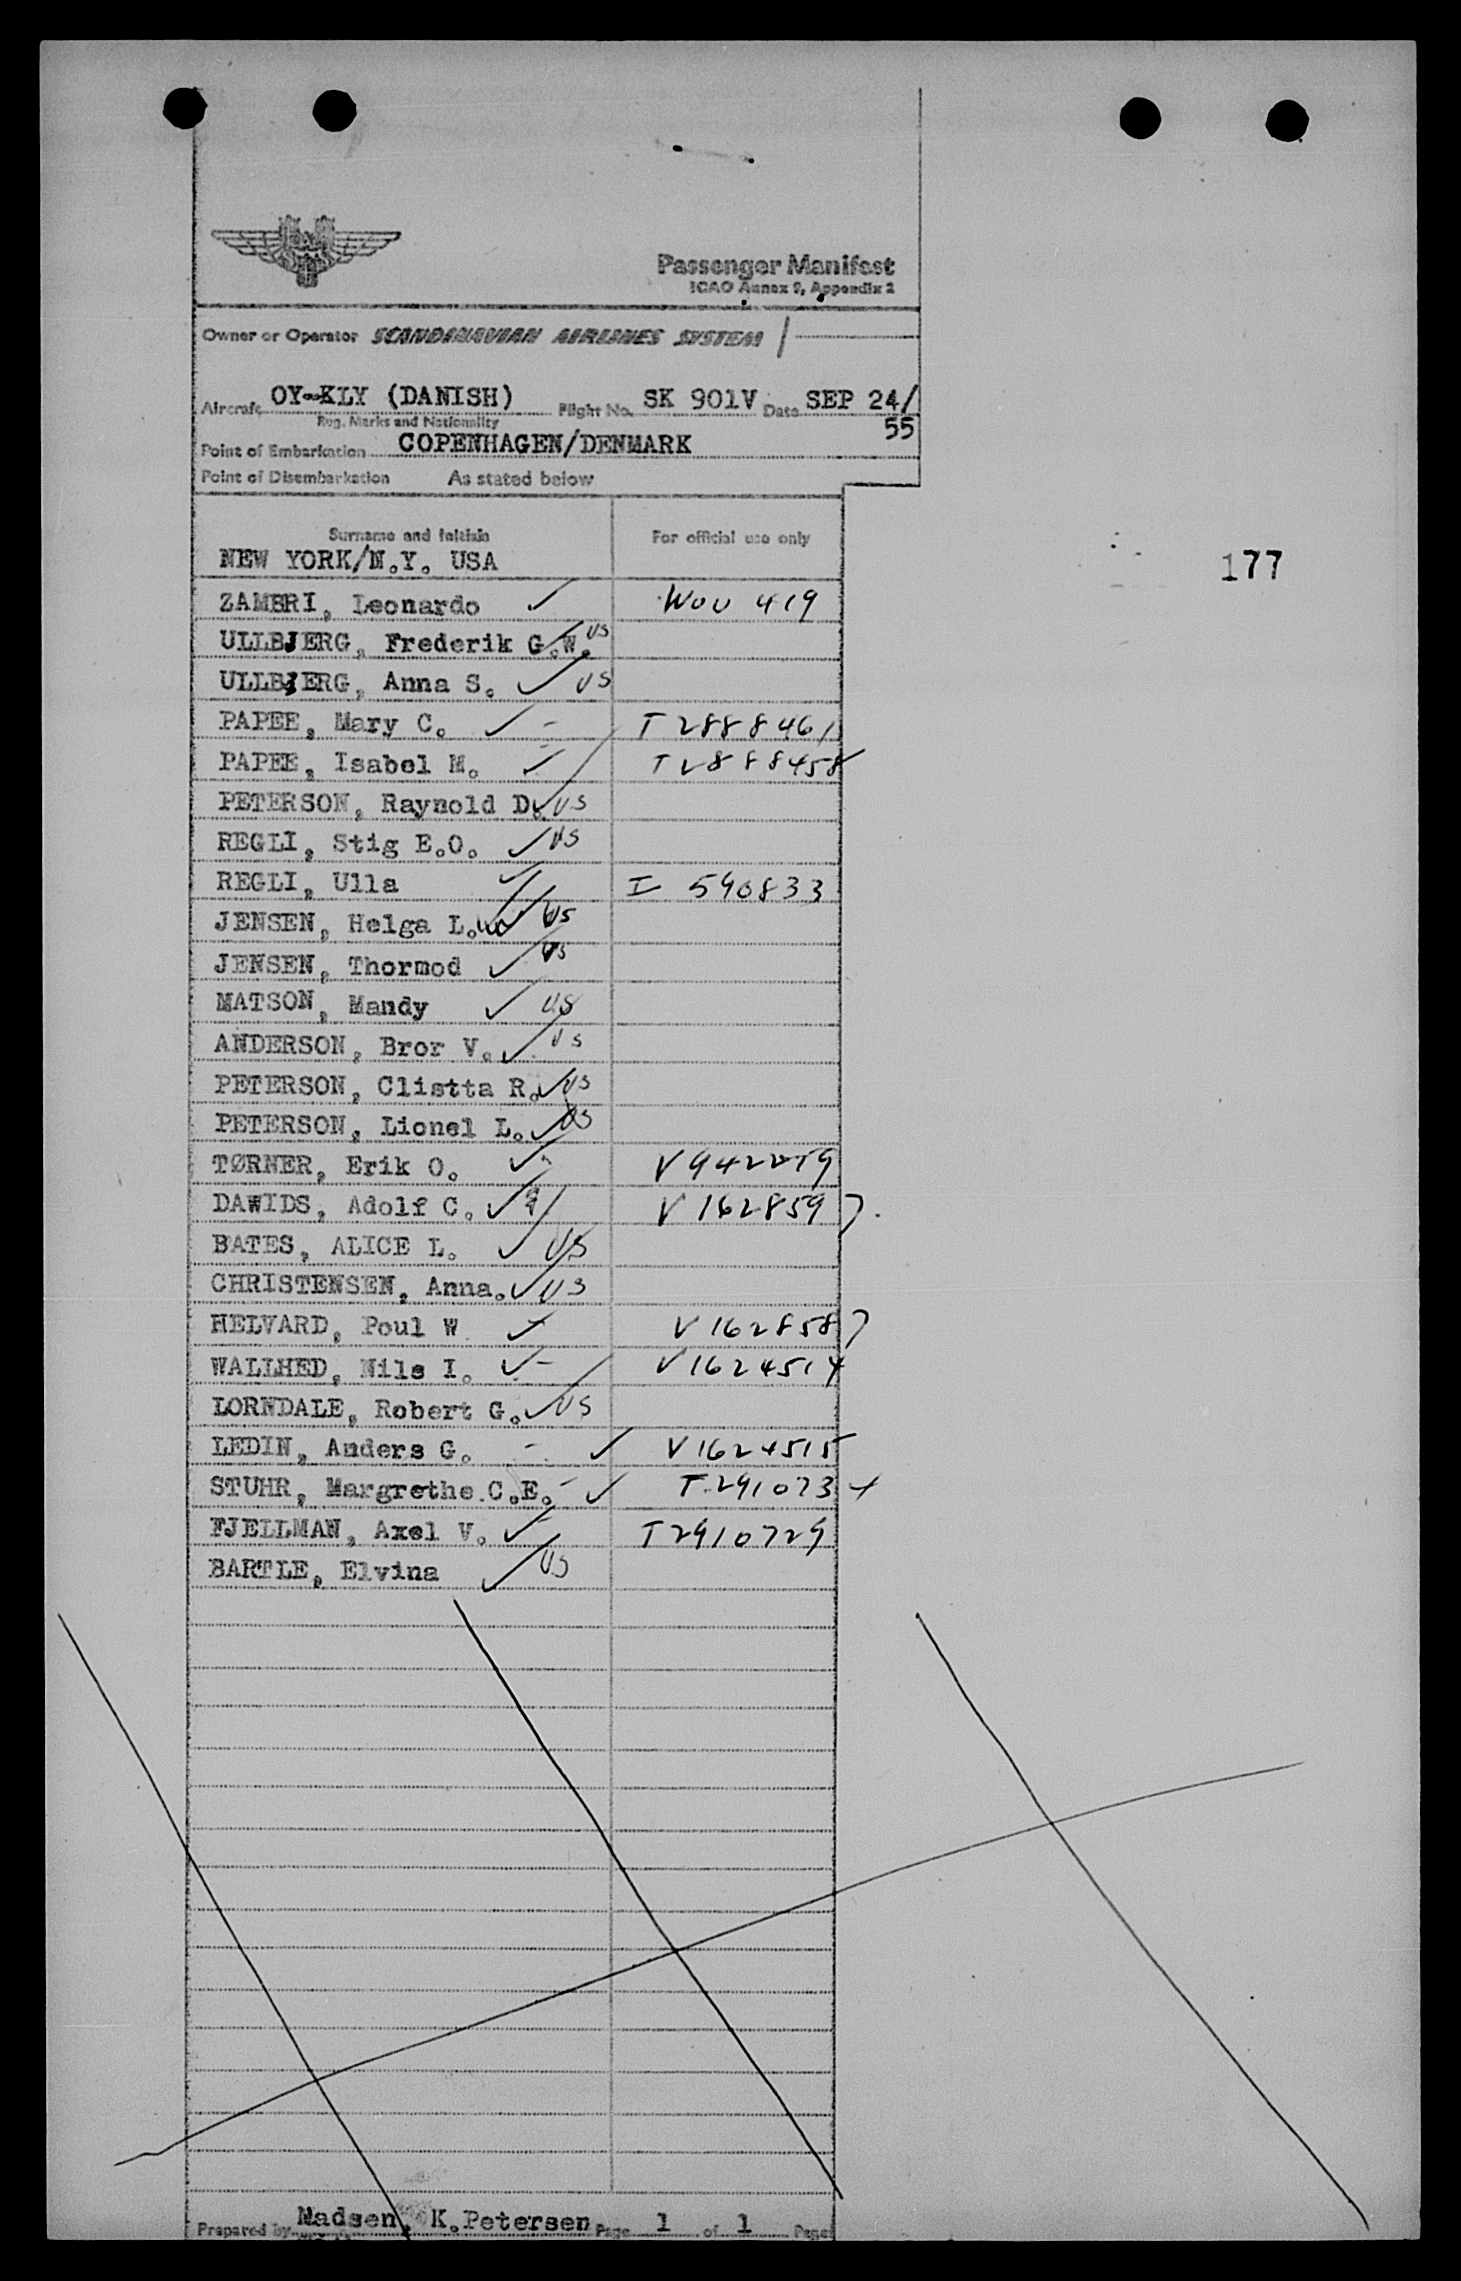 Passenger Manifest
ICAO Annex 9, Appendix 2
Owner or Operator SCANDINAVIAN AIRLINES SYSTEM
Aircraft OY-KLY (DANISH) Flight No. SK 901V Date SEP 24/
55
Reg. Marks and Nationality
Point of Embarkation COPENHAGEN/DENMARK
Point of Disembarkation As stated below
Surname and Initials For official use only
NEW YORK/N.Y. USA
177
ZAMBRI, Leonardo ✓ 419
ULLBJERG, Frederik G.W. ✓ US
ULLBJERG, Anna S. ✓ US
PAPEE, Mary C. ✓ - T 2888461
PAPEE, Isabel M. ✓ - T 2888458
PETERSON, Raynold D. ✓ US
REGLI, Stig E.O. ✓ US
REGLI, Ulla ✓ I 590833
JENSEN, Helga L. ✓ US
JENSEN, Thormod ✓ US
MATSON, Mandy ✓ US
ANDERSON, Bror V. ✓ US
PETERSON, Clistta R. ✓ US
PETERSON, Lionel L. ✓ US
TØRNER, Erik O. ✓ -
DAWIDS, Adolf C. ✓ V 162859 7.
BATES, ALICE L. ✓ US
CHRISTENSEN, Anna. ✓ US
HELVARD, Poul W ✓ - V 162858 7
WALLHED, Nils I. ✓ - V 1624514
LORNDALE, Robert G. ✓ US
LEDIN, Anders G. - ✓ V 1624515
STUHR, Margrethe.C.E. - ✓ T.291073 +
FJELLMAN, Axel V. ✓ - T 2910729
BARTLE, Elvina ✓ US
Prepared by Madsen, K.Petersen Page 1 of 1 Pages